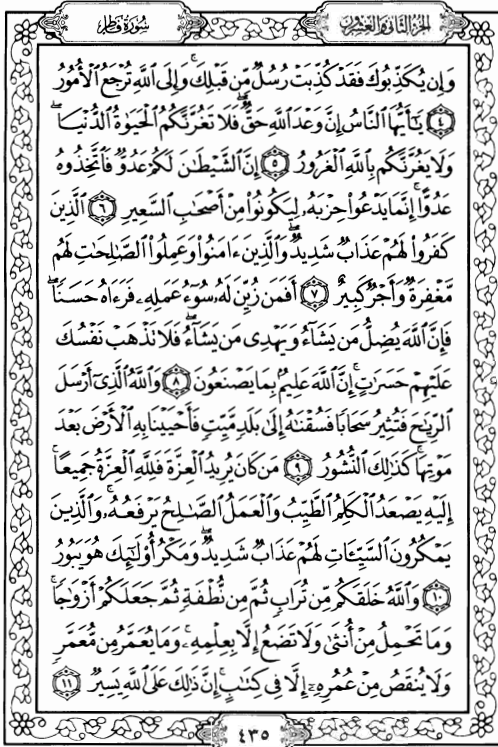 سورة فاطر
الجزء الثاني والعشرون
وَإِن يُكَذِّبُوكَ فَقَدْ كُذِّبَتْ رُسُلٌ مِّن قَبْلِكَ ۚ وَإِلَى ٱللَّهِ تُرْجَعُ ٱلْأُمُورُ
﴿٤﴾ يَـٰٓأَيُّهَا ٱلنَّاسُ إِنَّ وَعْدَ ٱللَّهِ حَقٌّ ۖ فَلَا تَغُرَّنَّكُمُ ٱلْحَيَوٰةُ ٱلدُّنْيَا ۖ
وَلَا يَغُرَّنَّكُم بِٱللَّهِ ٱلْغَرُورُ ﴿٥﴾ إِنَّ ٱلشَّيْطَـٰنَ لَكُمْ عَدُوٌّ فَٱتَّخِذُوهُ
عَدُوًّا ۚ إِنَّمَا يَدْعُوا۟ حِزْبَهُۥ لِيَكُونُوا۟ مِنْ أَصْحَـٰبِ ٱلسَّعِيرِ ﴿٦﴾ ٱلَّذِينَ
كَفَرُوا۟ لَهُمْ عَذَابٌ شَدِيدٌ ۖ وَٱلَّذِينَ ءَامَنُوا۟ وَعَمِلُوا۟ ٱلصَّـٰلِحَـٰتِ لَهُم
مَّغْفِرَةٌ وَأَجْرٌ كَبِيرٌ ﴿٧﴾ أَفَمَن زُيِّنَ لَهُۥ سُوٓءُ عَمَلِهِۦ فَرَءَاهُ حَسَنًا ۖ
فَإِنَّ ٱللَّهَ يُضِلُّ مَن يَشَآءُ وَيَهْدِى مَن يَشَآءُ ۖ فَلَا تَذْهَبْ نَفْسُكَ
عَلَيْهِمْ حَسَرَٰتٍ ۚ إِنَّ ٱللَّهَ عَلِيمٌۢ بِمَا يَصْنَعُونَ ﴿٨﴾ وَٱللَّهُ ٱلَّذِىٓ أَرْسَلَ
ٱلرِّيَـٰحَ فَتُثِيرُ سَحَابًا فَسُقْنَـٰهُ إِلَىٰ بَلَدٍ مَّيِّتٍ فَأَحْيَيْنَا بِهِ ٱلْأَرْضَ بَعْدَ
مَوْتِهَا ۚ كَذَٰلِكَ ٱلنُّشُورُ ﴿٩﴾ مَن كَانَ يُرِيدُ ٱلْعِزَّةَ فَلِلَّهِ ٱلْعِزَّةُ جَمِيعًا ۚ
إِلَيْهِ يَصْعَدُ ٱلْكَلِمُ ٱلطَّيِّبُ وَٱلْعَمَلُ ٱلصَّـٰلِحُ يَرْفَعُهُۥ ۚ وَٱلَّذِينَ
يَمْكُرُونَ ٱلسَّيِّـَٔاتِ لَهُمْ عَذَابٌ شَدِيدٌ ۖ وَمَكْرُ أُو۟لَـٰٓئِكَ هُوَ يَبُورُ
﴿١٠﴾ وَٱللَّهُ خَلَقَكُم مِّن تُرَابٍ ثُمَّ مِن نُّطْفَةٍ ثُمَّ جَعَلَكُمْ أَزْوَٰجًا ۚ
وَمَا تَحْمِلُ مِنْ أُنثَىٰ وَلَا تَضَعُ إِلَّا بِعِلْمِهِۦ ۚ وَمَا يُعَمَّرُ مِن مُّعَمَّرٍ
وَلَا يُنقَصُ مِنْ عُمُرِهِۦٓ إِلَّا فِى كِتَـٰبٍ ۚ إِنَّ ذَٰلِكَ عَلَى ٱللَّهِ يَسِيرٌ ﴿١١﴾
٤٣٥